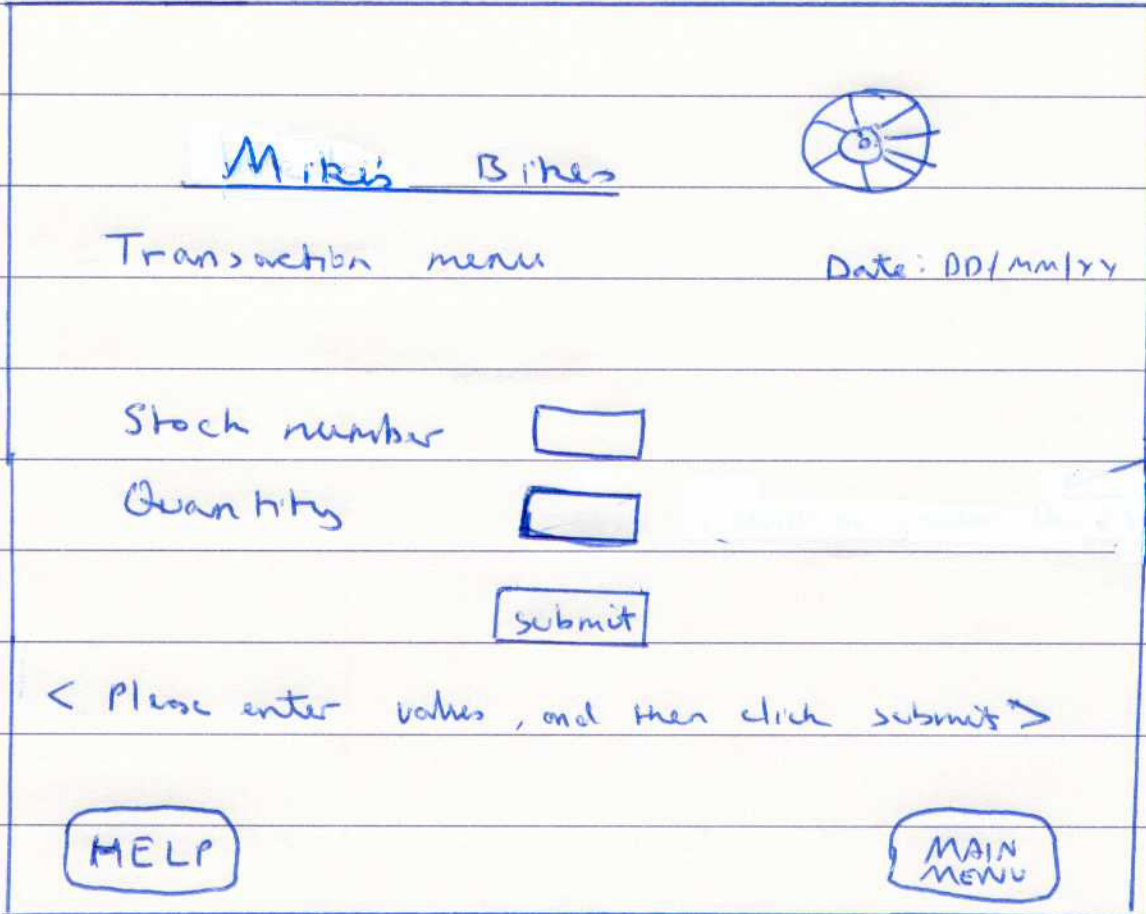 Mike's Bikes
Transaction menu
Date: DD/MM/YY
Stock number
Quantity
submit
< Please enter values, and then click submit >
HELP
MAIN
MENU